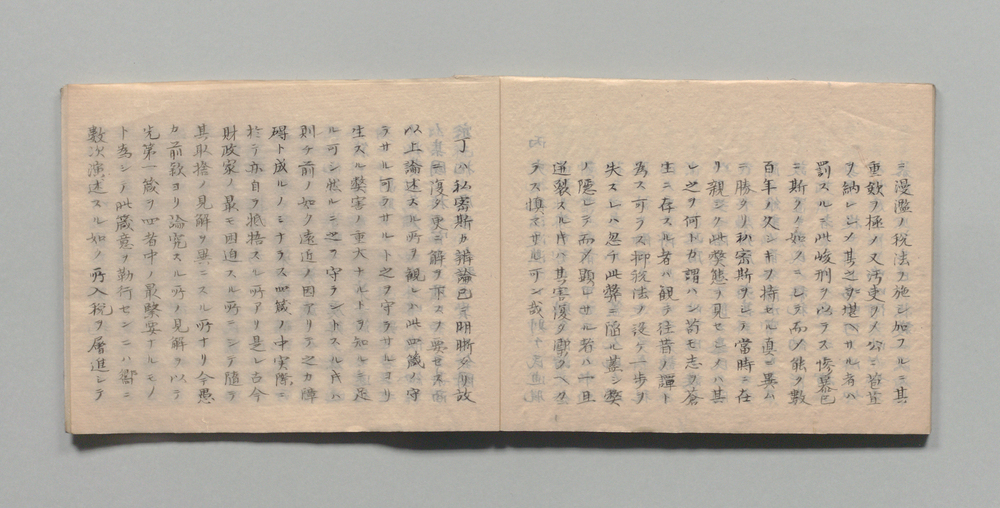 ニ漫濫ノ税法ヲ施シ加フルニ其
重歛ノ極ノ又汚吏ヲメ公ニ苛征
ヲ納レシメ其之ヲ堪ヘサル者ハ
罰スルニ此峻刑ヲ以テス惨暴已
ニ斯クノ如クニシテ而メ能ク數
百年ノ久シキヲ持セル真ニ異ム
ニ勝タリ私密斯ヲシテ當時ニ在
リ親シク此獘態ヲ見セシメハ其
レ之ヲ何トカ謂ハン苟モ志ヲ蒼
生ニ存スル者ハ観テ往昔ノ蹕ト
為ス可ラス抑税法ノ設ケ一歩ヲ
失スレハ忽チ此弊ニ陥ル蓋シ獘
ノ隠レテ而メ顕レサル者ハ一旦
逆裂スルキハ其害復タ禦クヘカ
ラス慎マサル可ン哉
丁ハ私密斯カ辨論已ニ明晰ナリ故
ニ復タ更ニ解ヲ亦スヲ要セス
以上論述スル所ヲ観レハ此四箴ノ守
ラサル可ラサルト之ヲ守ラサルヨリ
生スル獘害ノ重大ナルトヲ知ルニ足
ル可シ然ルニ之ヲ守ラントスルキハ
則チ前ノ如ク遠近ノ因アリテ之カ障
碍ト成ルノミナラス四箴ノ中實際ニ
於テ亦自ラ抵捂スル所アリ是レ古今
財政家ノ最モ困迫スル所ニシテ隨テ
其取捨ノ見解ヲ異ニスル所ナリ今愚
カ前欵ヨリ論究スル所ノ見解ヲ以テ
先第一箴ヲ四者中ノ最緊要ナルモノ
ト為シメ此箴意ヲ勤行センニハ嚮ニ
數次演述スル如ク所入税ヲ層進シテ